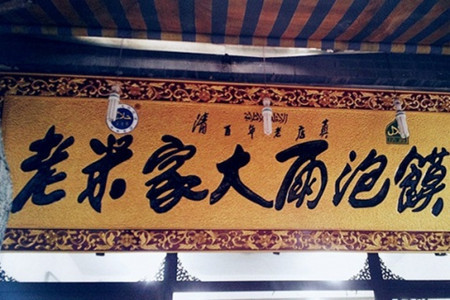 清 百年老店 真
老米家大雨泡馍